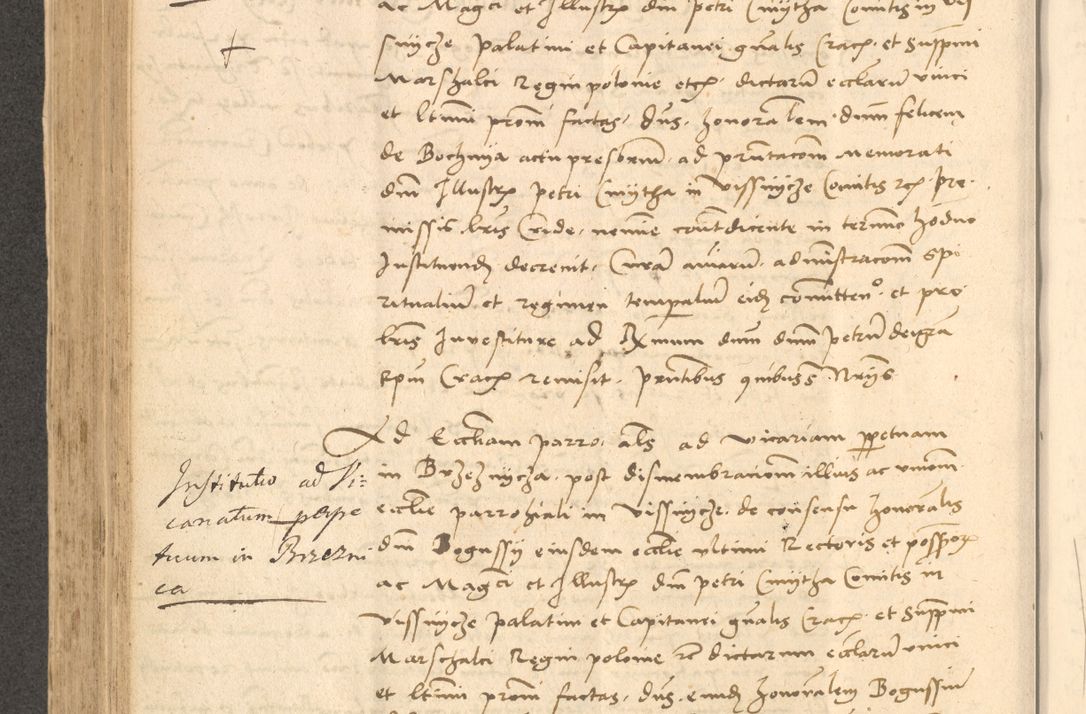 ac Magci et Illustrx dni petri Cmÿtha Comitis in Vis
snÿcze palatini et Capitanei gnalis Cracx. et Suppmi
Marszalci Regni polonie etcx. dictarum ecclarum unici
et ltimi promi factas. dns. honoralem. dnm felicem
de Bochnÿa actu presbrm. ad pruntacom memorati
dni Illustrx petri Cmÿtha in Vissnÿcze Comitis rcx pre-
missis lris Cride. nemine contdicente in termino hodno
Instituendm decrevit. Curam aiarum. administracom spi
ritualium et regimen temporalium eidm committen. et pro
lris Investiture ad Rxmum dnm dnm petrum dei gra
Epum Cracx remisit. prntibus quibus Nriis
Ad Ecclam parro. als ad vicariam ppetuam
in Brzeznÿcza. post dismembracionem illius ac unionem
ecclie parrohiali in Vissnÿcze. de consensu honoralis
dni Bogussÿ eiusdem ecclie ultimi Rectoris et possorx
ac Magci et Illustrx dni petri Cmÿtha Comitis in
Vissnÿcze palatini et Capitanei gnalis Cracx. et Suppmi
Marszalci Regni polonie rc dictarum ecclarum unici
et ltimi promi factas. dns. eundm honoralem Bogussium
Institutio ad Vi=
cariatum perpe
tuum in Brzezni
ca